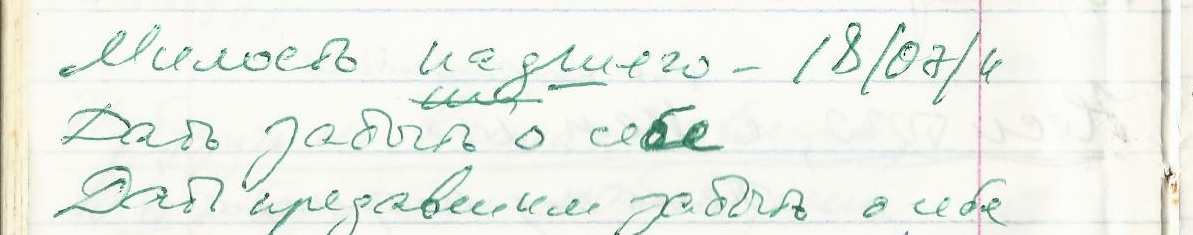 Милость падшего – 18/07/11
Дать забыть о себе
Дать предавшим забыть о себе